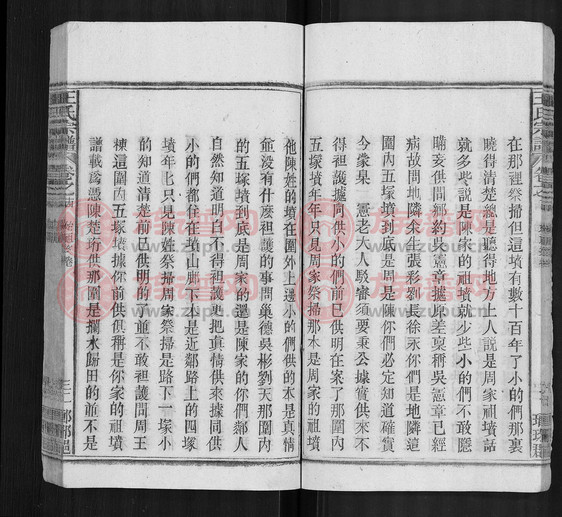 在那裡祭掃但這墳有數十百年了小的們那裏
曉得清楚總是聽得地方上人說是周家祖墳話
就多些說是陳家的祖墳就少些小的們不敢隱
瞞亥供問鄉約吳憲章據原差稟稱吳憲章已經
病故問地隣余生張彩劉長徐永你們是地隣這
圍內五塚墳到底是周是陳你們必定知道確實
今蒙杲憲老大人駁審須要秉公據實供來不
得袒護據同供小的們前供明在案了那圍內
五塚墳年年只見周家祭掃那木是周家的祖墳
他陳姓的墳在圍外上邊小的們供的本是真情
並沒有什麽袒護的事問巢德吳彬劉天那圍內
的五塚墳到底是周家的還是陳家的你們鄰人
自然知道明白不得袒護更把真情供來據同供
小的們都住在墳山脚下本是近鄰路上的四塚
墳年年只見陳姓祭掃周家祭掃是路下一塚小
的前知道清楚前已供明的了並不敢袒護問周王
棟這圍內五塚墳據你前供俱稱是你家的祖墳
譜載爲憑陳楚珩供那圍是攔水歸田的並不是
王氏宗譜
卷之
琅琊郡